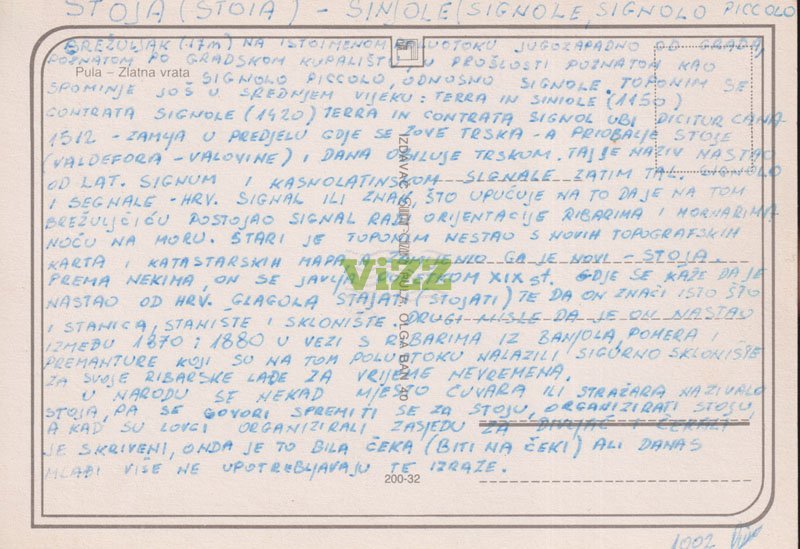 STOJA (STOIA) - SINJOLE (SIGNOLE, SIGNOLO PICCOLO
BREŽULJAK (17m) NA ISTOIMENOM POLUOTOKU JUGOZAPADNO OD GRADA,
POZNATOM PO GRADSKOM KUPALIŠTU U PROŠLOSTI POZNATOM KAO
Pula – Zlatna vrata
SIGNOLO PICCOLO, ODNOSNO SIGNOLE. TOPONIM SE
SPOMINJE JOŠ U SREDNJEM VIJEKU: TERRA IN SINIOLE (1150)
CONTRATA SIGNOLE (1420) TERRA IN CONTRATA SIGNOL UBI DICITUR CANA-
1512 - ZEMLJA U PREDJELU GDJE SE ZOVE TRSKA - A PRIOBALJE STOJE
(VALDEFORA - VALOVINE) I DANA OBILUJE TRSKOM. TAJ JE NAZIV NASTAO
OD LAT. SIGNUM I KASNOLATINSKOM SIGNALE ZATIM TAL. SIGNOLO
I SEGNALE - HRV. SIGNAL ILI ZNAK, ŠTO UPUĆUJE NA TO DA JE NA TOM
BREŽULJČIĆU POSTOJAO SIGNAL RADI ORIJENTACIJE RIBARIMA I MORNARIMA
NOĆU NA MORU. STARI JE TOPONIM NESTAO S NOVIH TOPOGRAFSKIH
KARTA I KATASTARSKIH MAPA, A GA JE NOVI - STOJA.
PREMA NEKIMA, ON SE JAVLJA POČETKOM XIX st. GDJE SE KAŽE DA JE
NASTAO OD HRV. GLAGOLA STAJATI (STOJATI) TE DA ON ZNAČI ISTO ŠTO
I STANICA, STANIŠTE I SKLONIŠTE. DRUGI MISLE DA JE ON NASTAO
IZMEĐU 1870 I 1880 U VEZI S RIBARIMA IZ BANJOLA, POMERA I
PREMANTURE KOJI SU NA TOM POLUOTOKU NALAZILI SIGURNO SKLONIŠTE
ZA SVOJE RIBARSKE LAĐE ZA VRIJEME NEVREMENA.
U NARODU SE NEKAD MJESTO ČUVARA ILI STRAŽARA NAZIVALO
STOJA, PA SE GOVORI SPREMITI SE ZA STOJU, ORGANIZIRATI STOJU,
A KAD SU LOVCI ORGANIZIRALI ZASJEDU ZA DIVLJAČ I ČEKALI
JE SKRIVENI, ONDA JE TO BILA ČEKA (BITI NA ČEKI) ALI DANAS
MLAĐI VIŠE NE UPOTREBLJAVAJU TE IZRAZE.
200-32
1002
IZDAVAČ
OLGA BAN
vizz